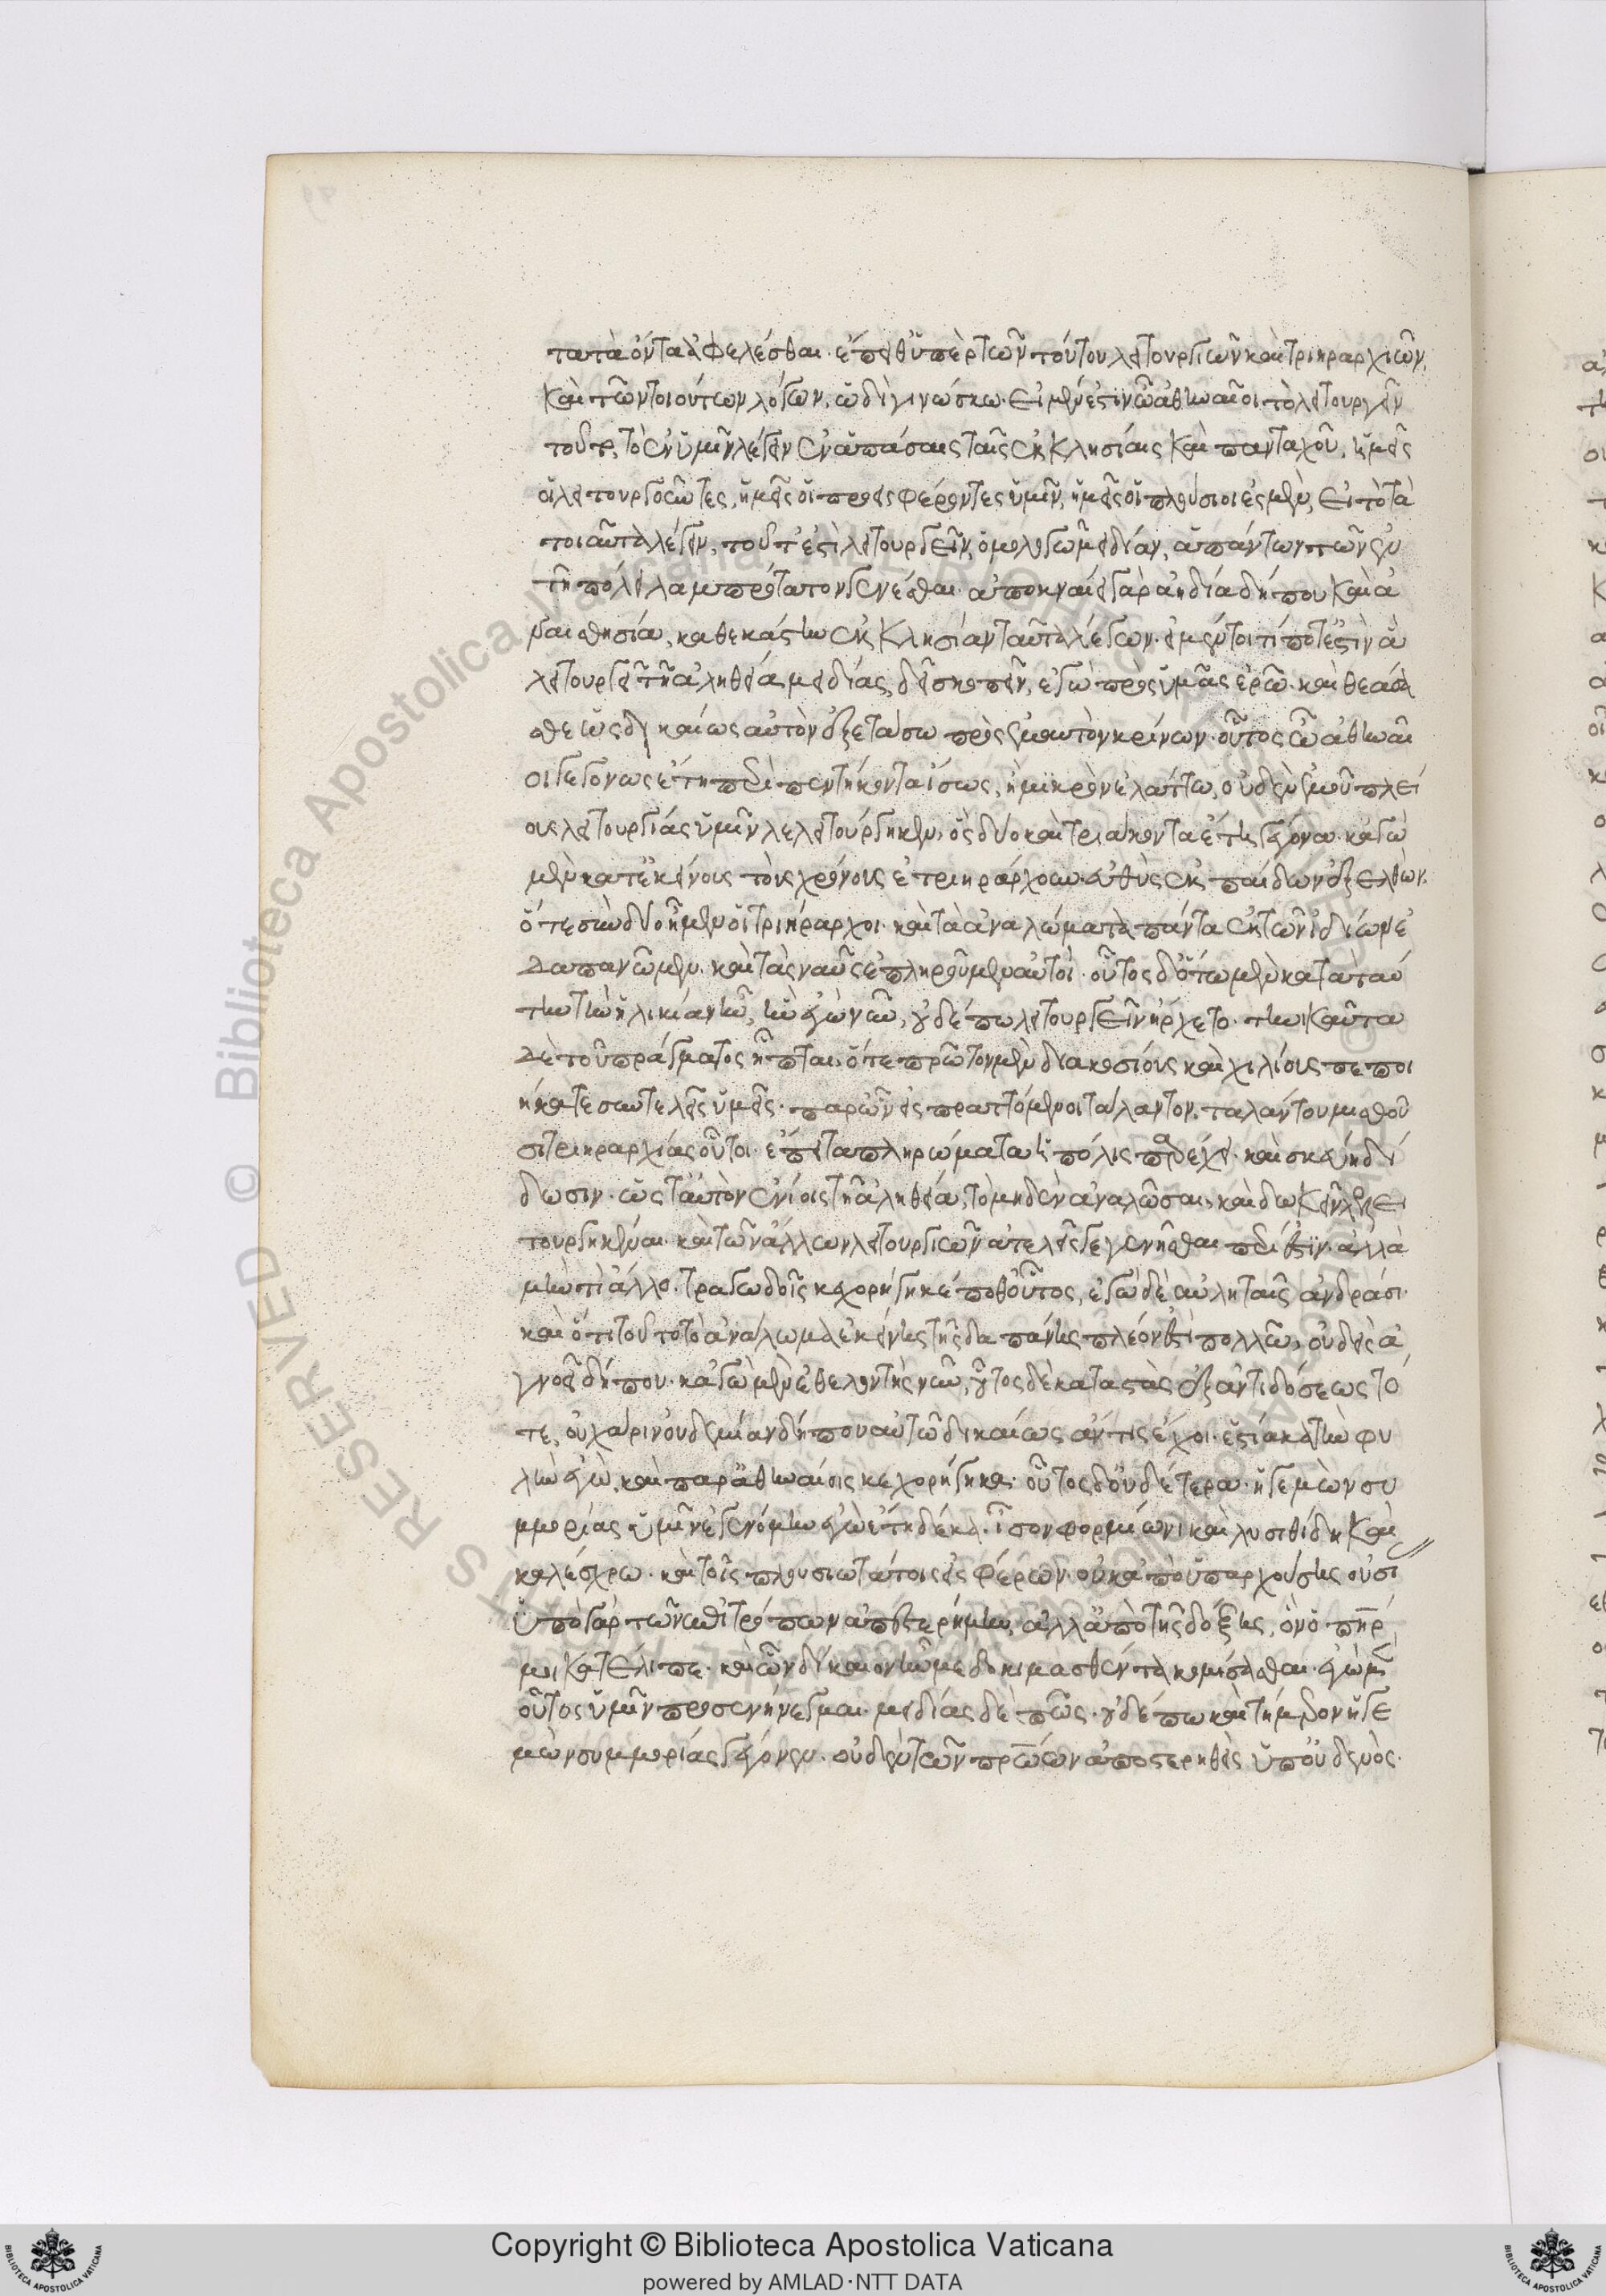 τατὰ ὄντα ἀφελέσθαι· εἴπεθ' ὑπὲρ τῶν τούτου λειτουργιῶν καὶ τριηραρχιῶν.
καὶ τῶν τοιούτων λόγων. ὡδὶ γινώσκω· εἰ μέν ἐστιν ὦ ἀθηναῖοι τὸ λειτουργεῖν
τοῦτο, τὸ ἐν ὑμῖν λέγειν ἐν ἁπάσαις ταῖς ἐκκλησίαις καὶ πανταχοῦ, ἡμεῖς
οἱ λειτουργοῦντες, ἡμεῖς οἱ προεισφέροντες ὑμῖν, ἡμεῖς οἱ πλούσιοι ἐσμέν, εἰ τὸ τὰ
τοιαῦτα λέγειν, τοῦτ' ἐστὶ λειτουργεῖν, ὁμολογῶ μειδίαν, ἁπάντων τῶν ἐν
τῇ πόλει λαμπρότατον γενέσθαι· ἀποκναίει γὰρ ἀηδίᾳ δήπου καὶ ἀ
ναισθησίᾳ, καθ' ἑκάστην ἐκκλησίαν ταῦτα λέγων· εἰ μέντοι τί ποτ' ἐστὶν ἃ
λειτουργεῖ τῇ ἀληθείᾳ μειδίας, δεῖ σκοπεῖν, ἐγὼ πρὸς ὑμᾶς ἐρῶ· καὶ θεάσα
σθε ὡς δικαίως αὐτὸν ἐξετάσω πρὸς ἐμαυτὸν κρίνων· οὗτος ὦ ἀθηναῖ
οι γεγονὼς ἔτη περὶ πεντήκοντα ἴσως, ἢ μικρὸν ἐλάττω, οὐδὲν ἐμοῦ πλεί
ους λειτουργίας ὑμῖν λελειτούργηκεν, ὃς δύο καὶ τριάκοντα ἔτη γέγονα· κἀγὼ
μὲν κατ' ἐκείνους τοὺς χρόνους ἐτριηράρχουν εὐθὺς ἐκ παίδων ἐξελθών.
ὅτε σὺν δύο ἦμεν οἱ τριήραρχοι· καὶ τὰ ἀναλώματα πάντα ἐκ τῶν ἰδίων ἐ
δαπανῶμεν· καὶ τὰς ναῦς ἐπληρούμεν αὐτοί· οὗτος δ' ὅτω μὲν κατὰ ταύ
την τὴν ἡλικίαν ἦν, ἣν ἐγὼ νῦν, οὐδέπω λειτουργεῖν ἤρχετο· τηνικαῦτα
δὲ τοῦ πράγματος ἧπται, ὅτε πρῶτον μὲν διακοσίους καὶ χιλίους πεποι
ήκατε συντελεῖς ὑμεῖς· παρ' ὧν εἰσπραττόμενοι τάλαντον. ταλάντου μισθοῦ
σι τριηραρχίας οὗτοι· εἶτα πληρώματα ἡ πόλις παρέχει· καὶ σκεύη δί
δωσιν· ὥστ' αὐτὸν ἐνίοις τῇ ἀληθείᾳ, τὸ μηδὲν ἀναλῶσαι, καὶ δοκεῖν λελει
τουργηκέναι· καὶ τῶν ἄλλων λειτουργιῶν ἀτελεῖς γεγενῆσθαι περίεστιν· ἀλλὰ
μὴν τί ἄλλο· τραγῳδοῖς κεχορήγηκέ ποθ' οὗτος, ἐγὼ δὲ αὐληταῖς ἀνδράσι·
καὶ ὅτι τοῦτο τὸ ἀνάλωμα ἐκείνης τῆς δαπάνης πλέον ἐστὶ πολλῶ, οὐδεὶς ἀ
γνοεῖ δήπου· κἀγὼ μὲν ἐθελοντὴς νῦν, οὗτος δὲ καταστὰς ἐξ ἀντιδόσεως τό
τε, οὗ χάριν οὐδεμίαν δήπου αὐτῷ δικαίως ἄν τις ἔχοι· ἔτι εἱστίακα τὴν φυ
λὴν ἐγώ, καὶ παναθηναίοις κεχορήγηκα· οὗτος δ' οὐδέτερα· ἡγεμὼν συ
μμορίας ὑμῖν ἐγενόμην ἐγὼ ἔτη δέκα· ἴσον φορμίωνι καὶ λυσιθείδῃ καὶ
καλαίσχρῳ· καὶ τοῖς πλουσιωτάτοις εἰσφέρων· οὐκ ἀπὸ ὑπαρχούσης οὐσί
ὑπὸ γὰρ τῶν ἐπιτρόπων ἀπεστερήμην, ἀλλ' ἀπὸ τῆς δόξης, ὧν ὁ πατήρ
μοι κατέλιπε· καὶ ὧν δίκαιον ἦν με δοκιμασθέντα κομίσασθαι· ἐγὼ μὲν
οὕτως ὑμῖν προσενήνεγμαι· μειδίας δὲ πῶς· οὐδέπω καὶ τήμερον ἡγε
μὼν συμμορίας γέγονεν· οὐδὲν τῶν πατρῴων ἀποστερηθεὶς ὑπ' οὐδενός·
Copyright © Biblioteca Apostolica Vaticana
powered by AMLAD·NTT DATA